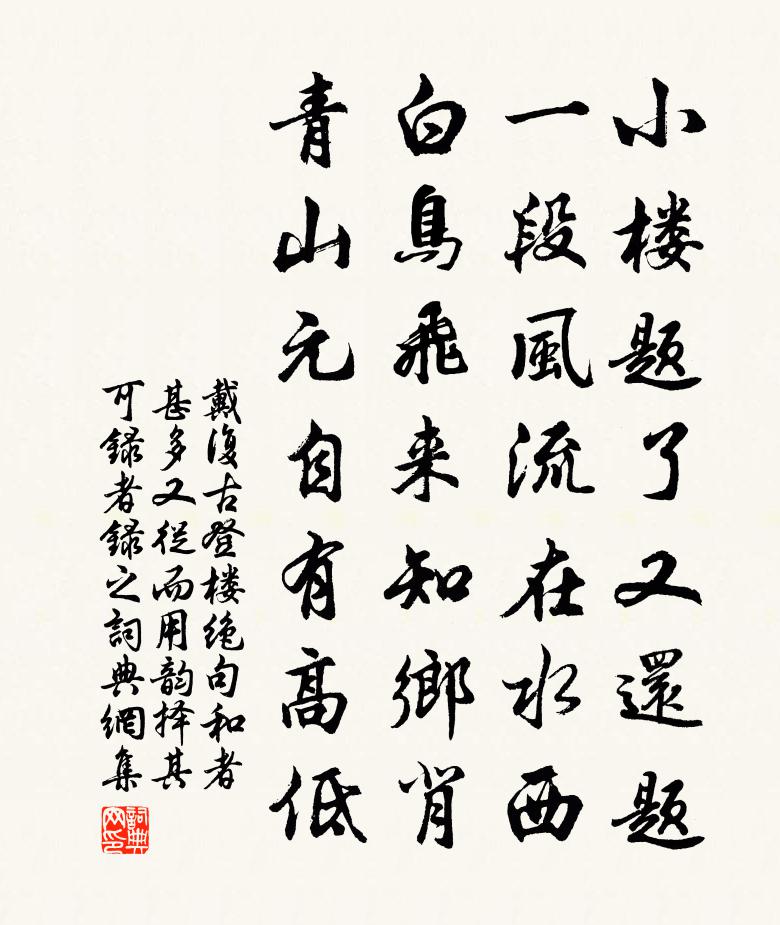 小楼题了又還题
一段風流在水西
白鳥飛来知鄉肯
青山元自有高低
戴復古登楼绝句和者
甚多又從而用韵择其
可録者録之詞典網集
詞典网印